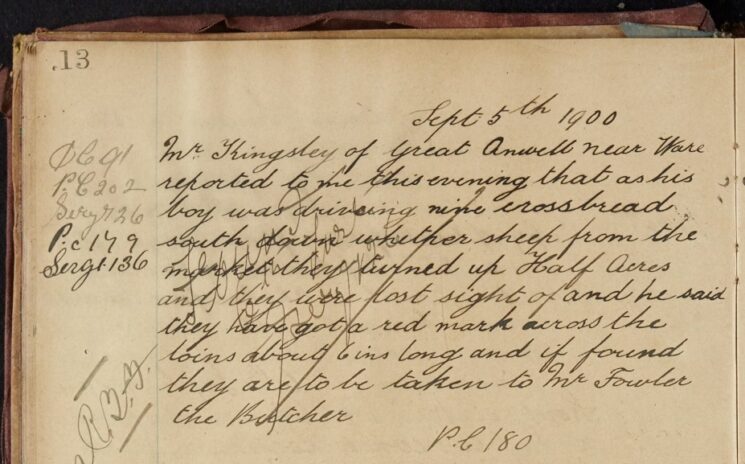 13
Sept 5th 1900
P.C 91
P.C 202
Sergt 26
P.c 179
Sergt 136
Mr Kingsley of Great Amwell near Ware
reported to me this evening that as his
boy was driveing nine crossbread
south down whether sheep from the
market they turned up Half Acres
and they were lost sight of and he said
they have got a red mark across the
loins about 6 ins long and if found
they are to be taken to Mr Fowler
the Butcher
P.C 180